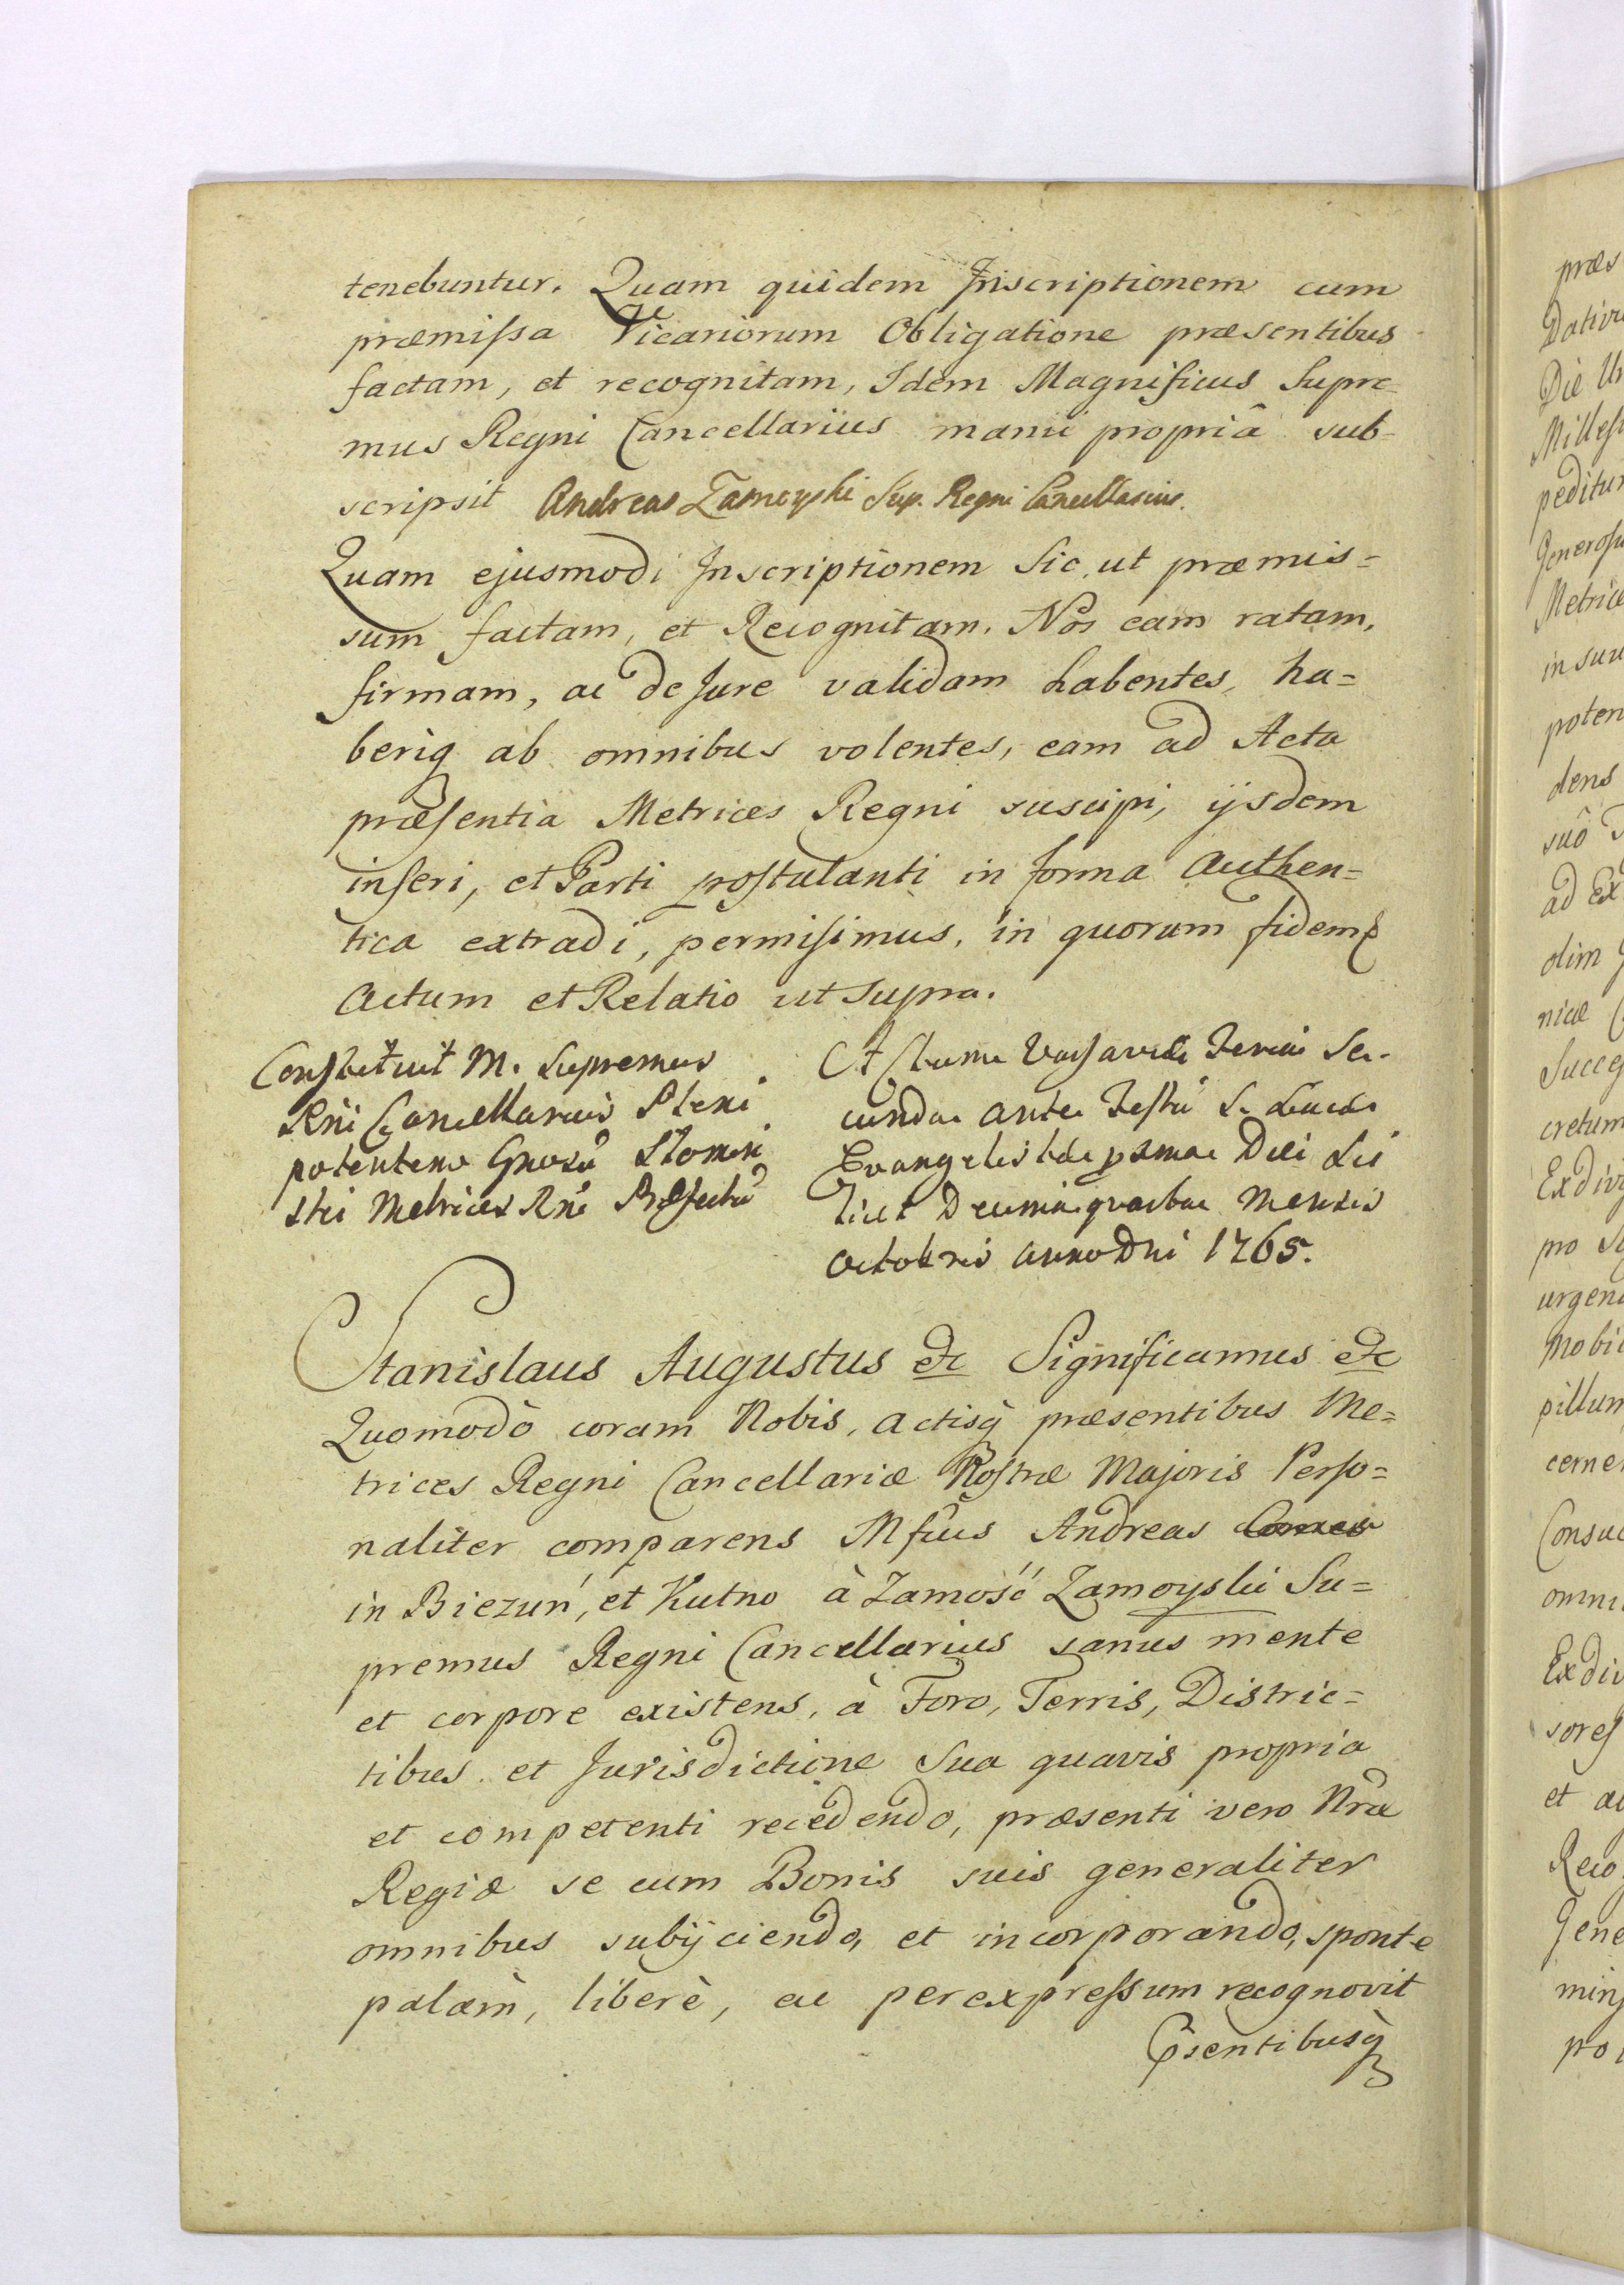 tenebuntur. Quam quidem Inscriptionem cum
præmissa Vicariorum Obligatione præsentibus
factam, et recognitam, Idem Magnificus Supre-
mus Regni Cancellarius manu propriâ sub-
scripsit Andreas Zamoyski Sup. Regni Cancellarius.
Quam ejusmodi Inscriptionem Sic, ut præmis=
sum factam, et Recognitam. Nos eam ratam,
firmam, ac de Jure validam habentes, ha=
beriq ab omnibus volentes, eam ad Acta
præsentia Metrices Regni suscipi, ijsdem
inseri, et Parti postulanti in forma Authen=
tica extradi, permisimus, in quorum fidem
Actum et Relatio ut supra.
Constituit M. Supremus
Rni Cancellarius Pleni
potentem Gnosu
Metrices Rni Præfectu
Actum Varsaviæ Feria Se-
cunda ante Festu S. Lucæ
Evangelistæ Die
Decima quarta Mensis
Octobris Anno Dni 1765.
Stanislaus Augustus &c Significamus &c
Quomodò coram Nobis, Actisq præsentibus Me=
trices Regni Cancellariæ Nostræ Majoris Perso=
naliter comparens Mfcus Andreas Comes
in Biezuń, et Kutno à Zamość Zamoyski Su=
premus Regni Cancellarius sanus mente
et corpore existens, à Foro, Terris, Distric=
tibus et Jurisdictione Sua quavis propria
et competenti recedendo, præsenti vero Nræ
Regiæ se cum Bonis suis generaliter
omnibus subijciendo, et incorporando, sponte
palàm, liberè, ac per expressum recognovit
Psentibusq
præs
Die
peditur
Metrice
in suu
poten
dens
suô
ad Ex
olim
niæ
Succes
cretum
Exdivi
pro
urgen
Mobi
pillum
cerne
Consue
omni
Exdiv
sores
et ac
Reco
Gene